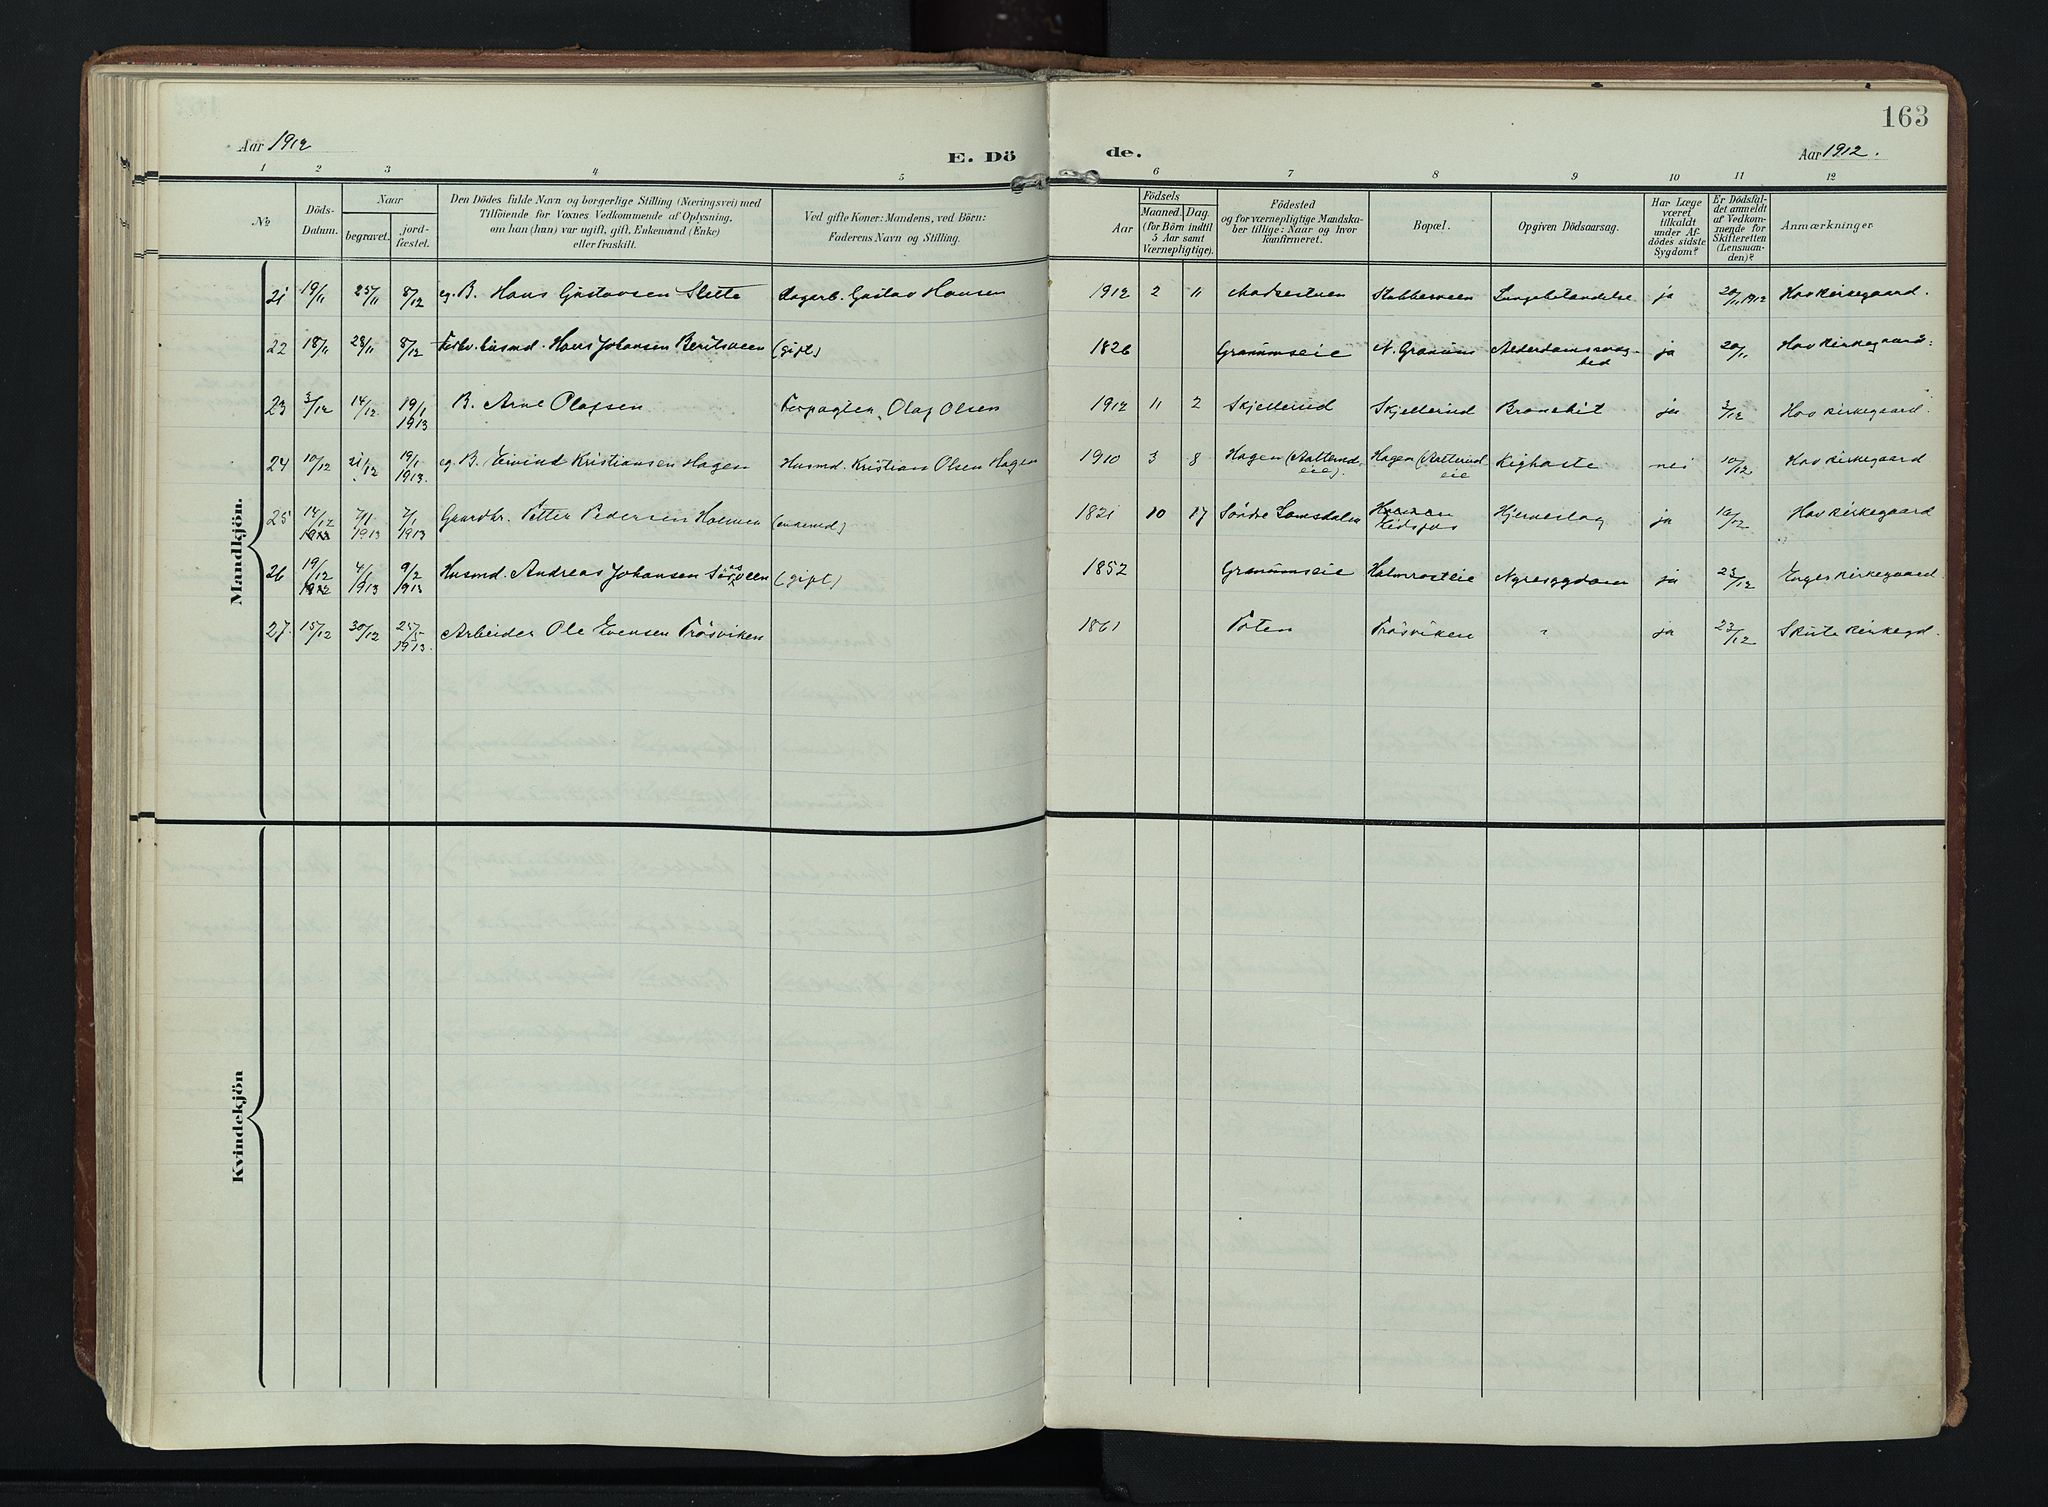 163
Aar 1912
E. Dö de.
Aar 1912.
1 2 3 4 5 6 7 8 9 10 11 12
№
Döds-Datum.
Naar
begravet.
jord-fæstet.
Den Dödes fulde Navn og borgerlige Stilling (Næringsvei) med
Tilföiende for Voxnes Vedkommende af Oplysning,
om han (hun) var ugift, gift, Enkemand (Enke)
eller fraskilt.
Ved gifte Koner: Mandens, ved Börn:
Faderens Navn og Stilling.
Födsels
Aar
Maaned. Dag.
(for Börn indtil
5 Aar samt
Værnepligtige).
Födested
og for værnepligtige Mandska-
ber tillige: Naar og hvor
konfirmeret.
Bopæl.
Opgiven Dödsaarsag.
Har Læge
været
tilkaldt
under Af-
dödes sidste
Sygdom?
Er Dödsfal-
det anmeldt
af Vedkom-
mende for
Skifteretten
(Lensman-
den)?
Anmærkninger
Mandkjön.
21 19/11 25/11 8/12 eg. B. Hans Gustavsen Dagarb. Gustav Hansen 1912 2 11 Madsestuen Stabbesveen Lungebetændelse ja 20/11 1912 Hov Kirkegaard.
22 18/11 28/11 8/12 Forhv. husmd. Hans Johansen Beritsveen (gift) 1826 Granumseie N. Granum Alderdomssvag-hed ja 20/11 Hov Kirkegaard.
23 3/12 14/12 19/1 1913 B. Arne Olafsen Forpagter Olaf Olsen 1912 11 2 Skjellerud Skjellerud Bronchit ja 3/12 Hov Kirkegaard.
24 10/12 21/12 19/1 1913. eg. B. Eivind Kristiansen Hagen Husmd. Kristian Olsen Hagen 1910 3 8 Hagen eie). Hagen eie Kighoste nei 10/12 Hov Kirkegaard
25 14/12 7/1 1913 7/1 1913 Gaardbr. Petter Pedersen Holmen (enkemd) 1821 10 17 Söndre Lomsdalen Hjerneslag ja 16/12 Hov Kirkegaard
26 19/12 1912 4/1 1913 9/2 1913 Husmd. Andreas Johansen (gift) 1852 Granumseie Holmrosteie Nyresygdom ja 23/12 Enger Kirkegaard.
27. 15/12 30/12 25/5 1913. Arbeider Ole Evensen Frösviken 1861 Toten Frösviken " ja 23/12 Skute Kirkegd.
Kvindekjön